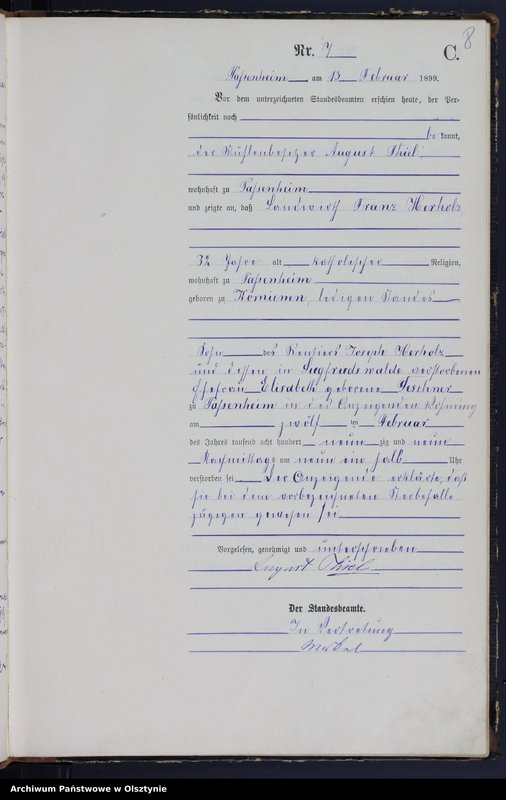 8
Nr. 7 C.
Passenheim am 13 Februar 1899.
Vor dem unterzeichneten Standesbeamten erschien heute, der Per-
sönlichkeit nach
be kannt,
der August Thiel,
wohnhaft zu Passenheim
und zeigte an, daß Landwirth Franz Herholz
32 Jahre alt katholischer Religion,
wohnhaft zu Passenheim
geboren zu Komienen, ledigen Standes
Sohn des Rentiers Joseph Herholz
und dessen in Siegfriedswalde verstorbenen
Ehefrau Elisabeth geborene
zu Passenheim in des Anzeigenden Wohnung
am zwölf ten Februar
des Jahres tausend acht hundert neun zig und neun
Nachmittags um neun ein halb Uhr
verstorben sei. Der Anzeigende erklärte, daß
sie bei dem vorbezeichneten Sterbefalle
zugegen gewesen sei.
Vorgelesen, genehmigt und unterschrieben
August Thiel
Der Standesbeamte.
In Vertretung
Archiwum Państwowe w Olsztynie